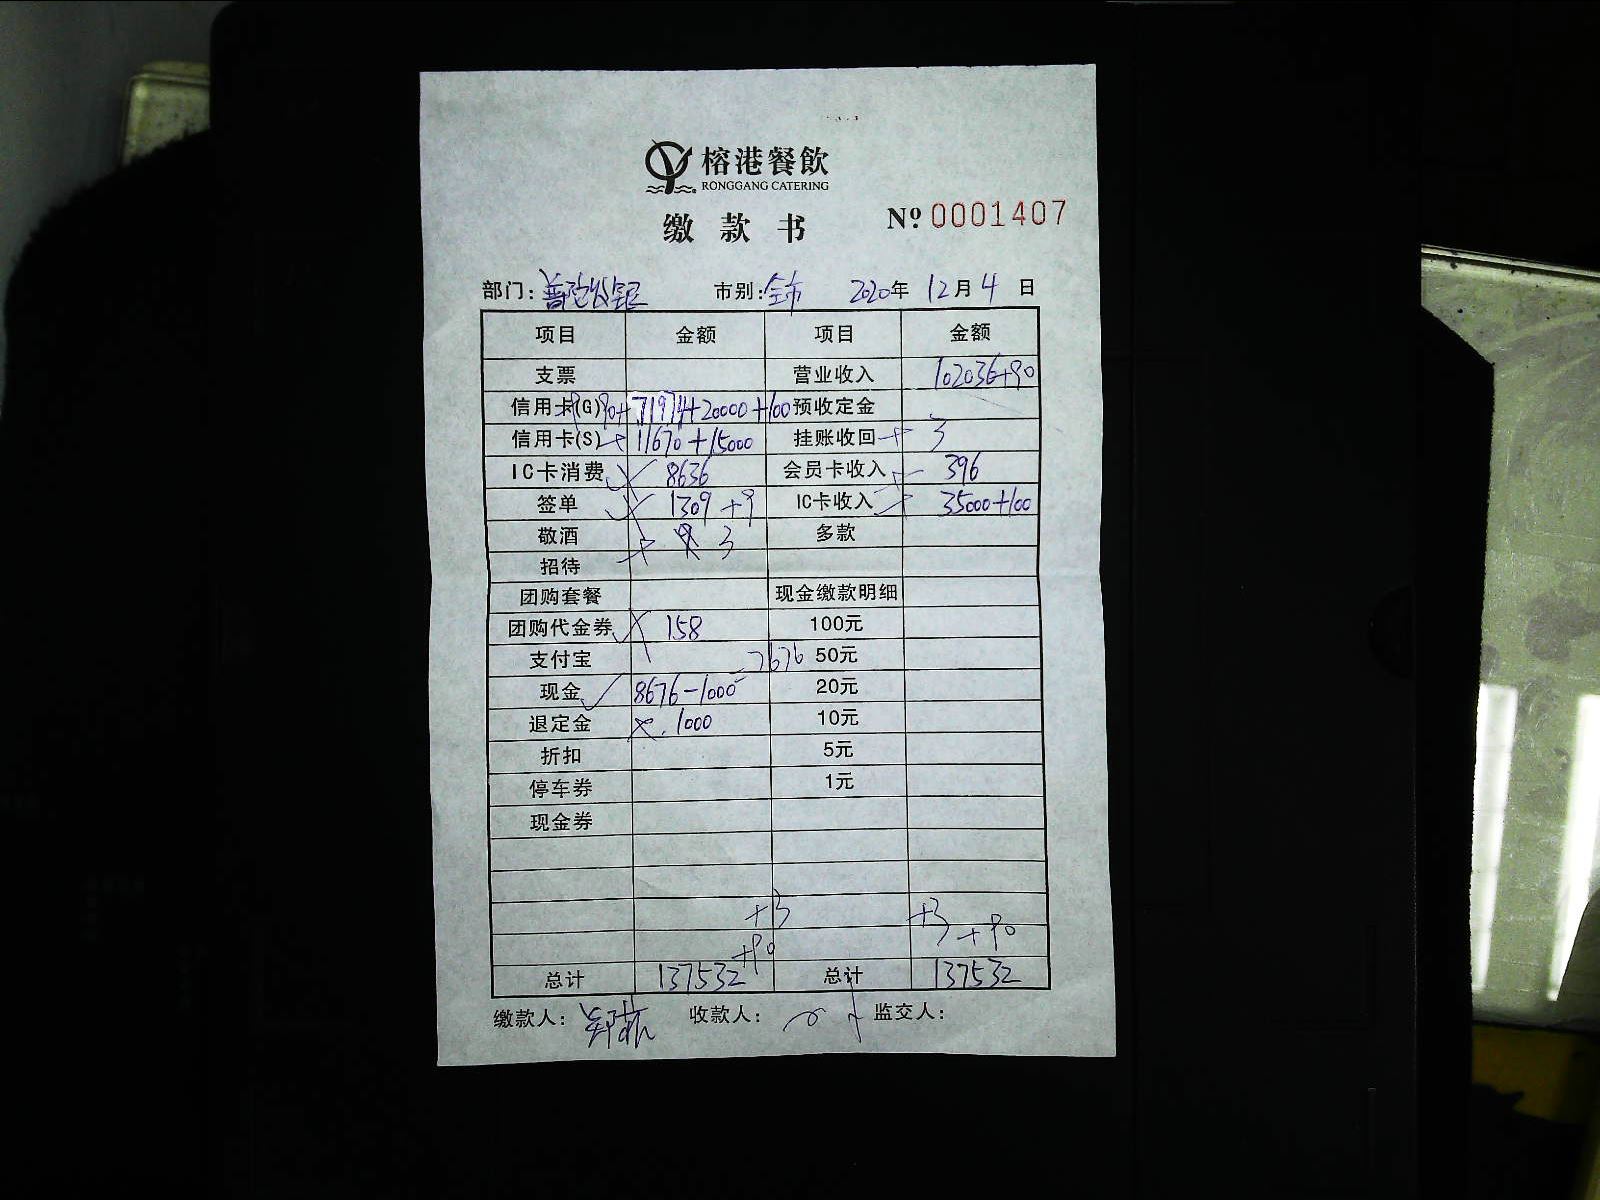 榕港餐飲
RONGGANG CATERING
缴款书 № 0001407
部门: 市别:全市 2020年 12月4日
项目 金额 项目 金额
支票 营业收入 102036+90
信用卡(G) 90+71974+20000+100 预收定金
信用卡(S) 11670+15000 挂账收回 3
IC卡消费 8636 会员卡收入 396
签单 1309+9 IC卡收入 35000+100
敬酒 3 多款
招待
团购套餐 现金缴款明细
团购代金券 158 100元
支付宝 7676 50元
现金 8676-1000 20元
退定金 1000 10元
折扣 5元
停车券 1元
现金券
+3 +3
+90 +90
总计 137532 总计 137532
缴款人: 收款人: 监交人: